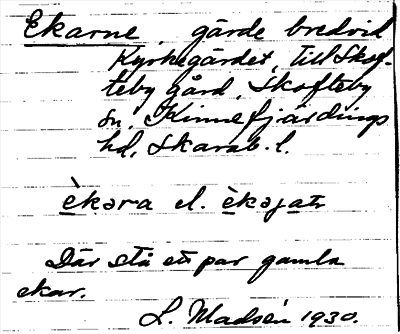 Ekarne, gärde bredvid
Kyrkegärdet, till Skof-
teby gård, Skofteby
sn, Kinnefjärdings
hd, Skarab. l.
èkəra el. èkəjaṇ
Där stå ett par gamla
ekar.
L. Madsén 1930.